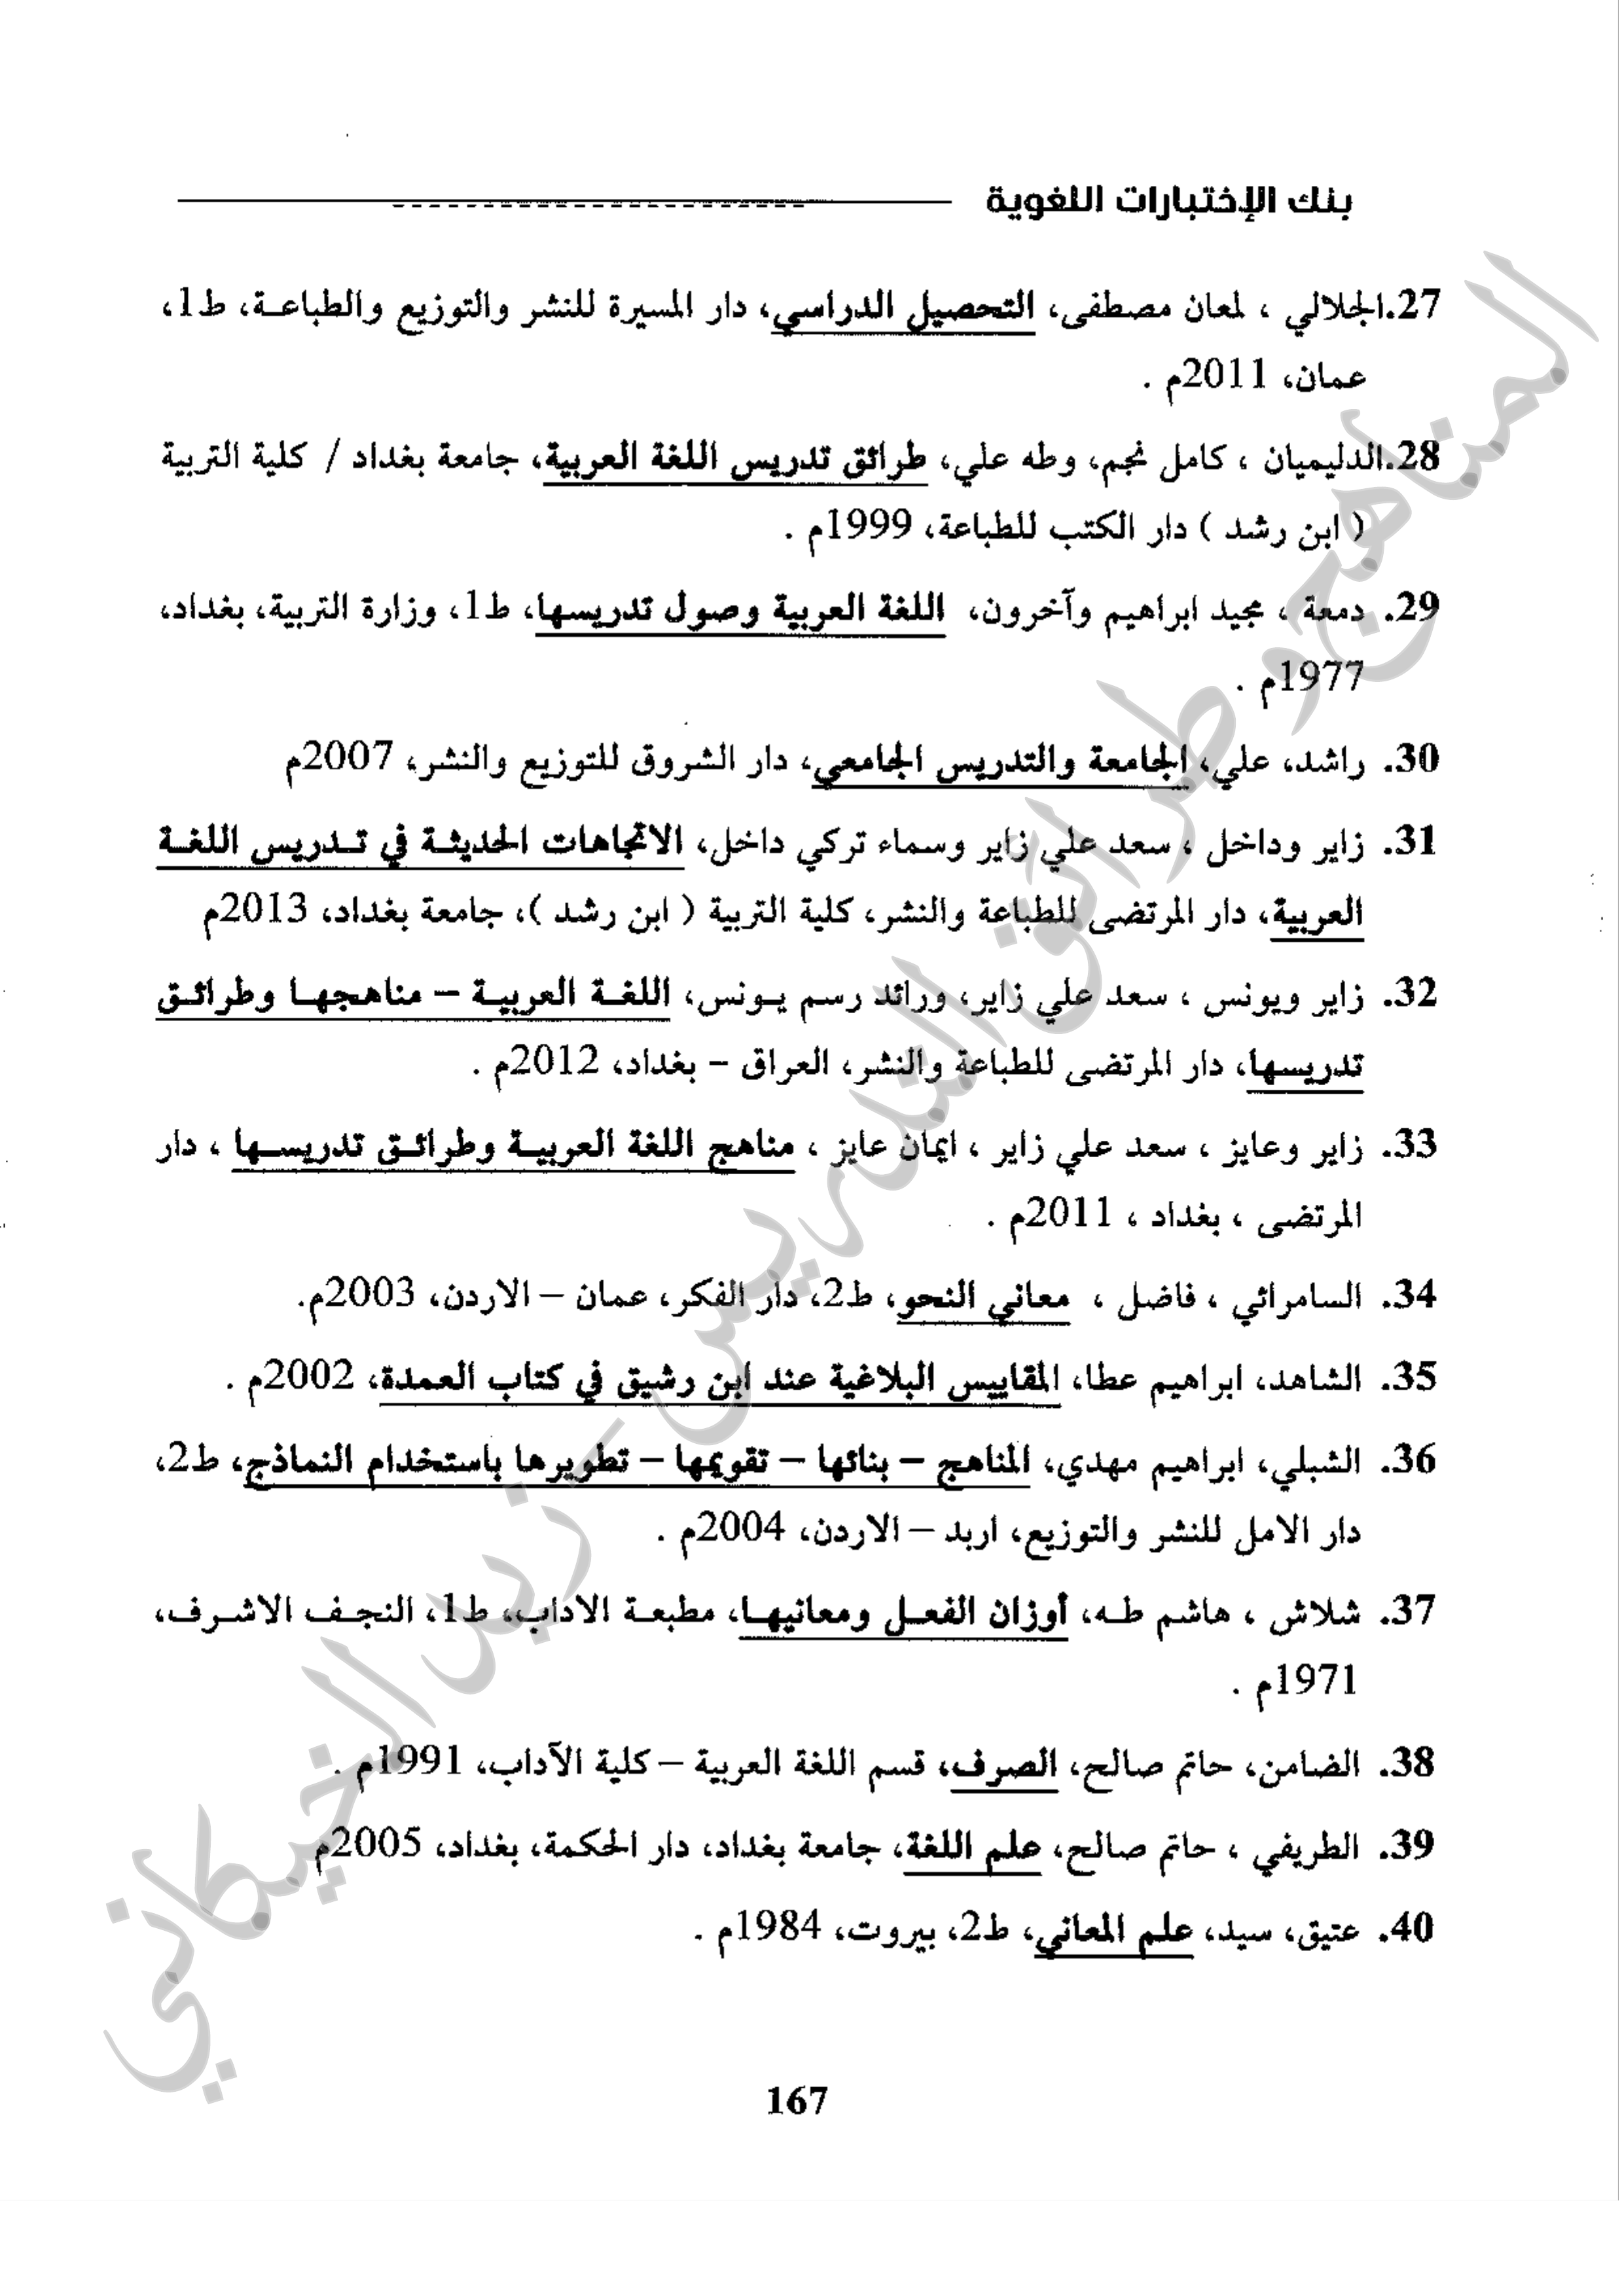 بنك الإختبارات اللغوية
27.الجلالي ، لمعان مصطفى، التحصيل الدراسي، دار المسيرة للنشر والتوزيع والطباعة، ط1،
عمان، 2011م .
28.الدليميان ، كامل نجم، وطه علي، طرائق تدريس اللغة العربية، جامعة بغداد / كلية التربية
( ابن رشد ) دار الكتب للطباعة، 1999م .
29. دمعة ، مجيد ابراهيم وآخرون، اللغة العربية وصول تدريسها، ط1، وزارة التربية، بغداد،
1977م .
30. راشد، علي، الجامعة والتدريس الجامعي، دار الشروق للتوزيع والنشر، 2007م
31. زاير وداخل ، سعد علي زاير وسماء تركي داخل، الاتجاهات الحديثة في تدريس اللغة
العربية، دار المرتضى للطباعة والنشر، كلية التربية ( ابن رشد )، جامعة بغداد، 2013م
32. زاير ويونس ، سعد علي زاير، ورائد رسم يونس، اللغة العربية – مناهجها وطرائق
تدريسها، دار المرتضى للطباعة والنشر، العراق – بغداد، 2012م .
33. زاير وعايز ، سعد علي زاير ، ايمان عايز ، مناهج اللغة العربية وطرائق تدريسها ، دار
المرتضى ، بغداد ، 2011م .
34. السامرائي ، فاضل ، معاني النحو، ط2، دار الفكر، عمان – الاردن، 2003م.
35. الشاهد، ابراهيم عطا، المقاييس البلاغية عند ابن رشيق في كتاب العمدة، 2002م .
36. الشبلي، ابراهيم مهدي، المناهج – بنائها – تقويمها – تطويرها باستخدام النماذج، ط2،
دار الامل للنشر والتوزيع، اربد – الاردن، 2004م .
37. شلاش ، هاشم طه، أوزان الفعل ومعانيها، مطبعة الاداب، ط1، النجف الاشرف،
1971م .
38. الضامن، حاتم صالح، الصرف، قسم اللغة العربية – كلية الآداب، 1991م .
39. الطريفي ، حاتم صالح، علم اللغة، جامعة بغداد، دار الحكمة، بغداد، 2005م
40. عتيق، سيد، علم المعاني، ط2، بيروت، 1984م .
167
المناهج وطرائق التدريس - زيد الخيكاني